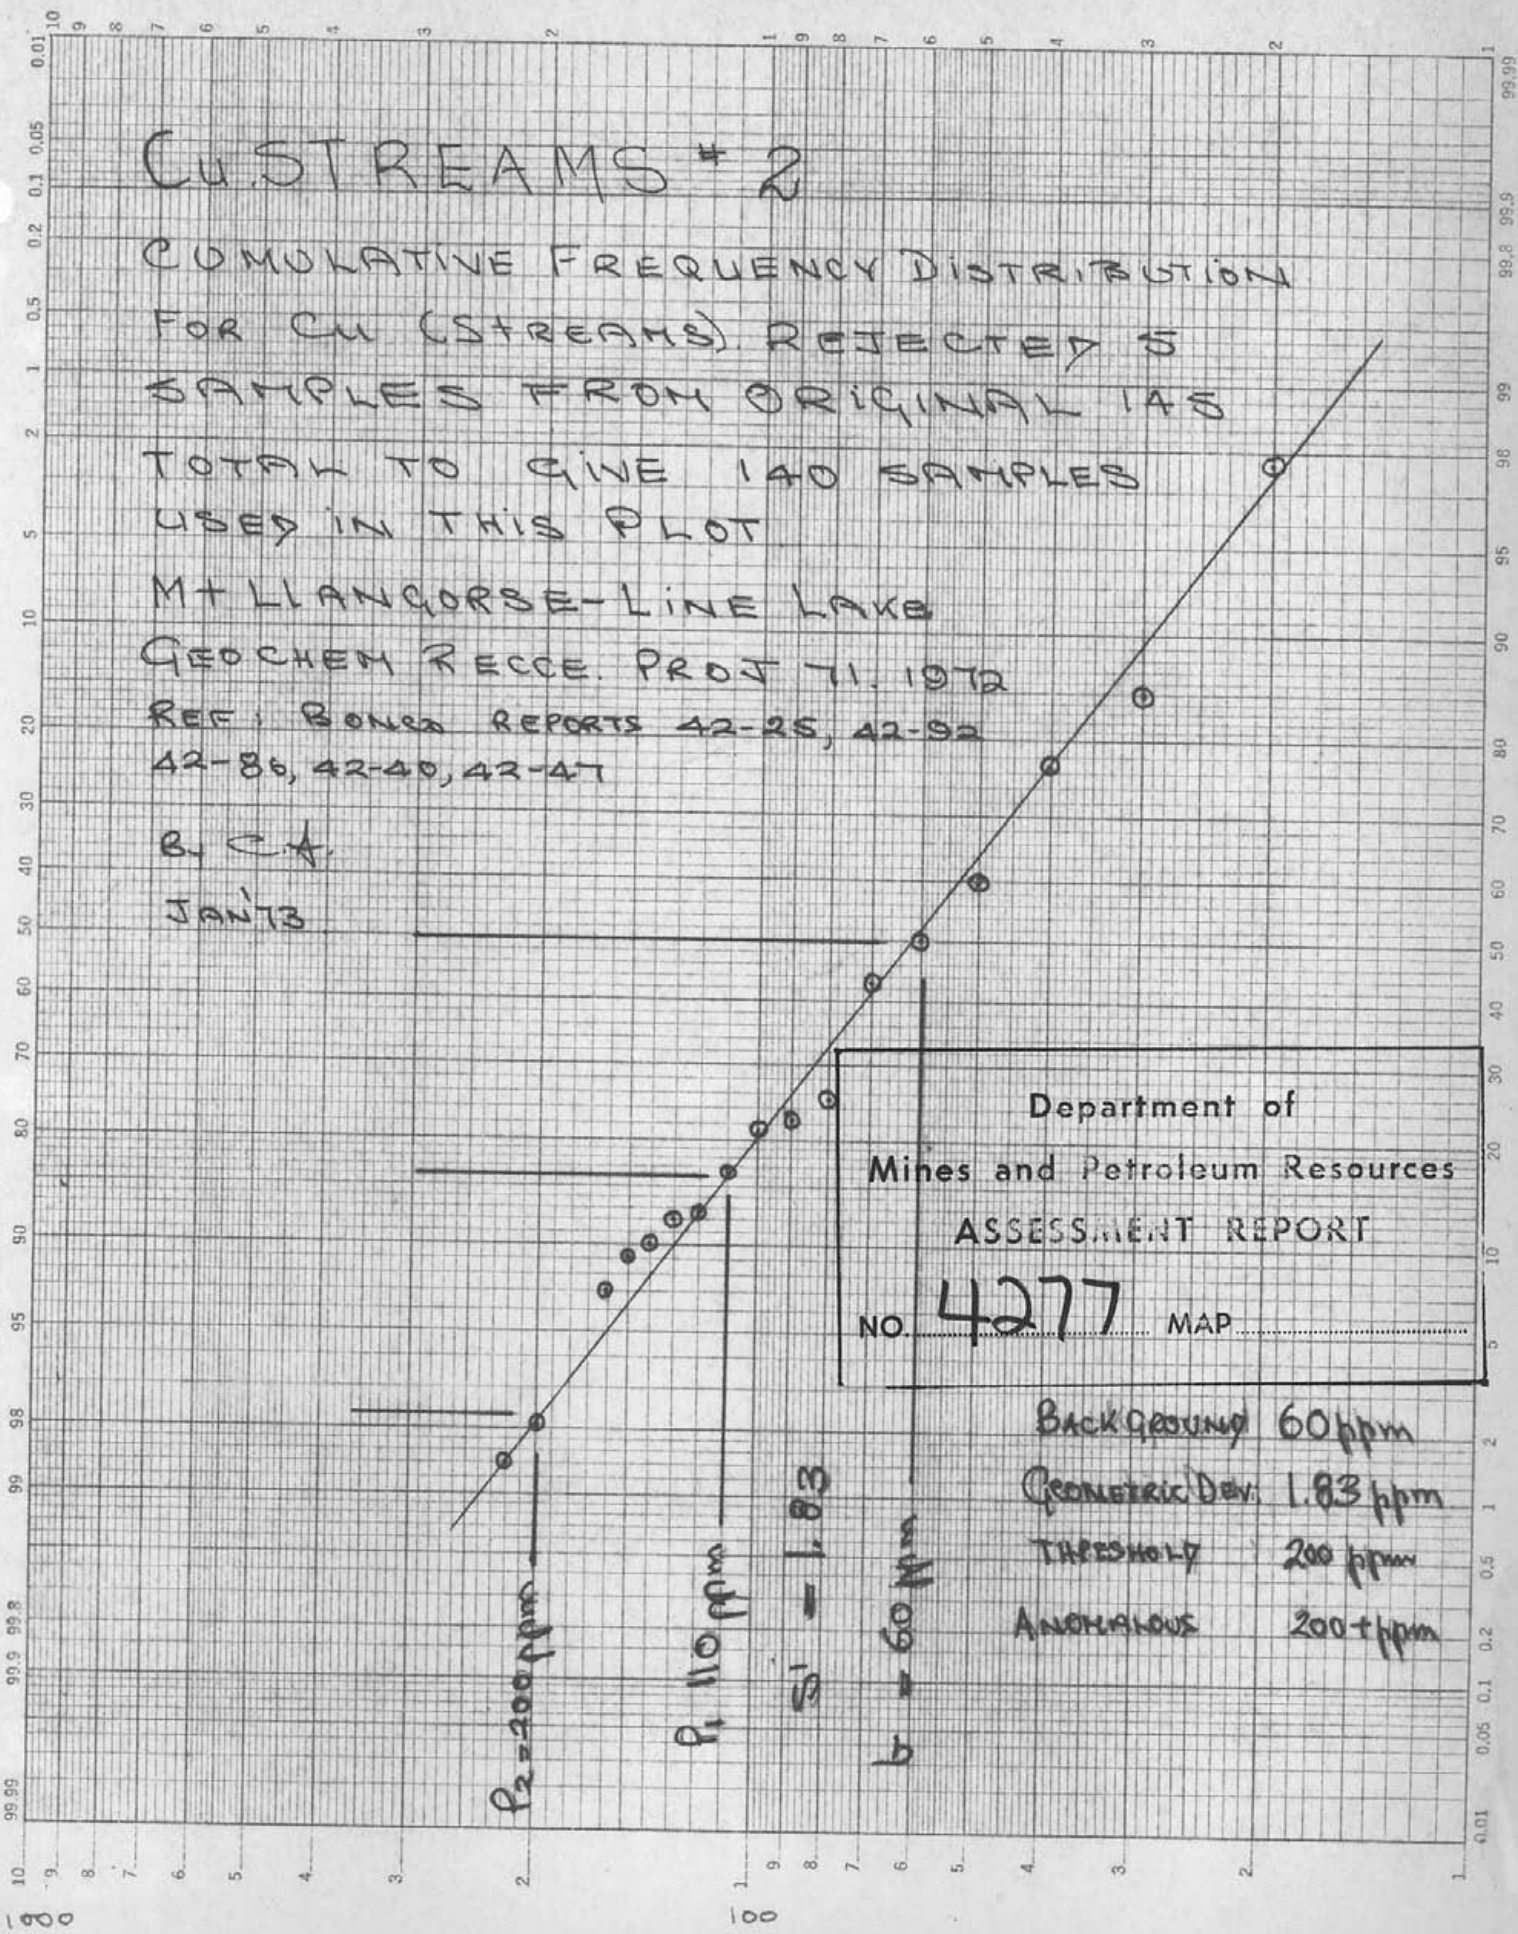 10 9 8 7 6 5 4 3 2 1 9 8 7 6 5 4 3 2 1
0.01 0.05 0.1 0.2 0.5 1 2 5 10 20 30 40 50 60 70 80 90 95 98 99 99.8 99.9 99.99
Cu. STREAMS # 2
CUMULATIVE FREQUENCY DISTRIBUTION
FOR Cu (STREAMS). REJECTED 5
SAMPLES FROM ORIGINAL 145
TOTAL TO GIVE 140 SAMPLES
USED IN THIS PLOT
Mt LLANGORSE-LINE LAKE
GEOCHEM RECCE. PROJ 71. 1972
REF: REPORTS 42-25, 42-92
42-86, 42-40, 42-47
By C.A.
JAN'73
Department of
Mines and Petroleum Resources
ASSESSMENT REPORT
NO. 4277 MAP
BACKGROUND 60 ppm
GEOMETRIC DEV. 1.83 ppm
THRESHOLD 200 ppm
ANOMALOUS 200+ppm
P2 = 200 ppm
P1 110 ppm
S' = 1.83
b = 60 ppm
99.99 99.9 99.8 99 98 95 90 80 70 60 50 40 30 20 10 5 2 1 0.5 0.2 0.1 0.05 0.01
10 9 8 7 6 5 4 3 2 1 9 8 7 6 5 4 3 2 1
100